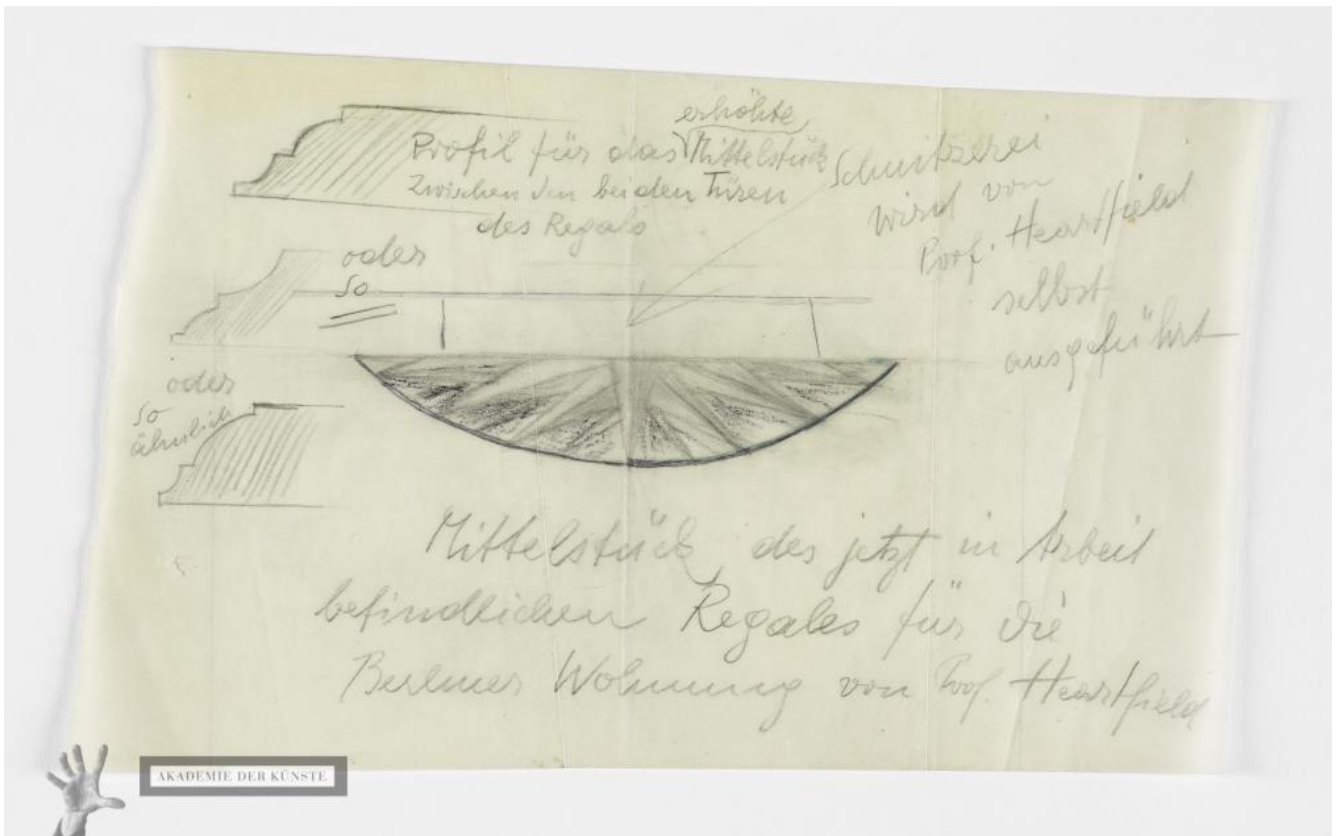 erhöhte
Profil für das Mittelstück
Zwischen den beiden Türen
des Regals
Schnitzerei
wird von
Prof. Heartfield
selbst
ausgeführt
oder
so
oder
so
ähnlich
Mittelstück des jetzt in Arbeit
befindlichen Regales für die
Berliner Wohnung von Prof. Heartfield
AKADEMIE DER KÜNSTE